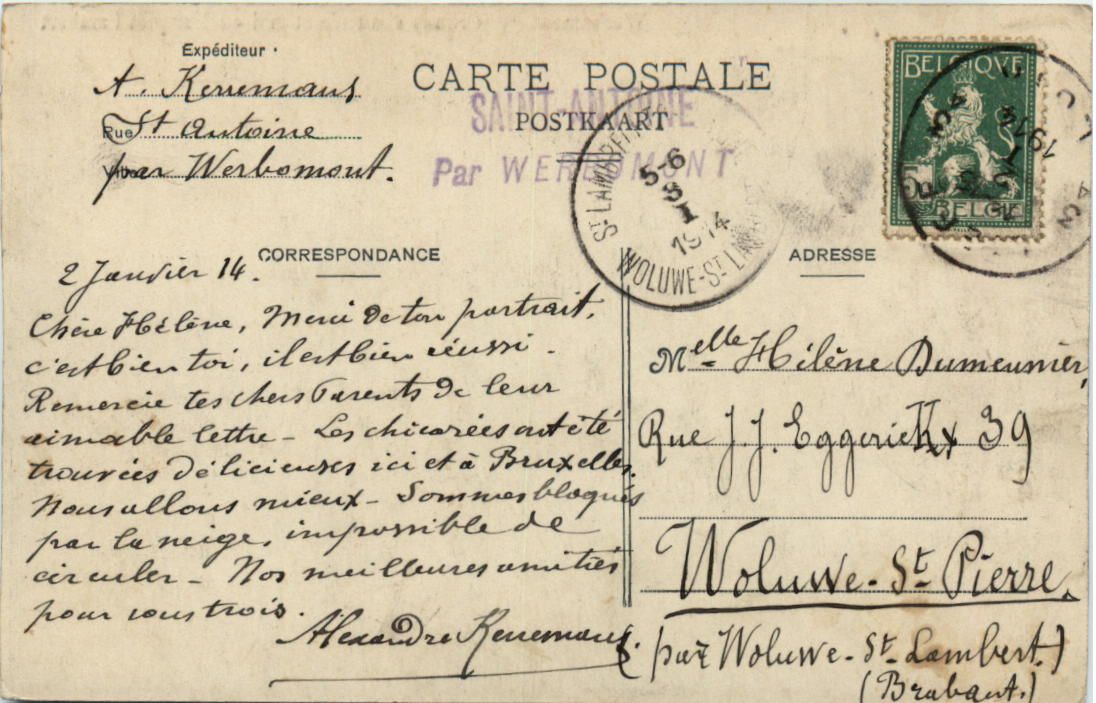 Expéditeur
A. Kerremans
Rue St Antoine
par Werbomont.
CARTE POSTALE
POSTKAART
SAINT-ANTOINE
Par WERBOMONT
5-6
3
I
1914
WOLUWE-ST LAMBERT
BELGIQUE
BELGIË
1914
CORRESPONDANCE
2 Janvier 14.
Chère Hélène, Merci de ton portrait,
c'est bien toi, il est bien réussi.
Remercie tes chers Parents de leur
aimable lettre - Les chicorées ont été
trouvées délicieuses ici et à Bruxelles.
Nous allons mieux - Sommes bloqués
par la neige, impossible de
circuler - Nos meilleures amitiés
pour vous trois.
Alexandre Kerremans.
ADRESSE
Melle Hélène Dumeunier,
Rue J. J. Eggerickx 39
Woluwe-St. Pierre.
(par Woluwe-St. Lambert.)
(Brabant.)